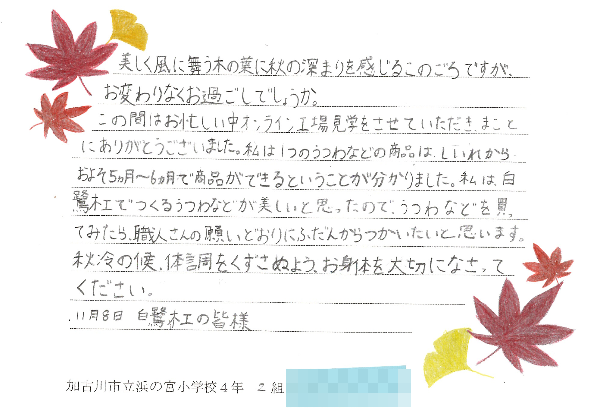 美しく風に舞う木の葉に秋の深まりを感じるこのごろですが、
お変わりなくお過ごしでしょうか。
この間はお忙しい中オンライン工場見学をさせていただき、まこと
にありがとうございました。私は1つのうつわなどの商品は、しいれから
およそ5ヵ月〜6ヵ月で商品ができるということが分かりました。私は、白
鷺木工でつくるうつわなどが美しいと思ったので、うつわなどを買っ
てみたら、職人さんの願いどおりにふだんからつかいたいと思います。
秋冷の候、体調をくずさぬよう、お身体を大切になさって
ください。
11月8日 白鷺木工の皆様
加古川市立浜の宮小学校4年 2組